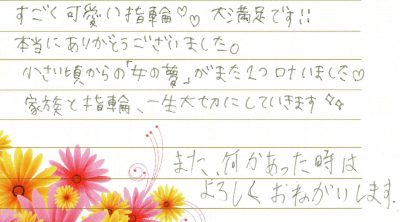 すごく可愛い指輪♡♡ 大満足です!!
本当にありがとうございました。
小さい頃からの「女の夢」がまた1つ叶いました♡
家族と指輪、一生大切にしていきます✧✧
また、何かあった時は
よろしくおねがいします。